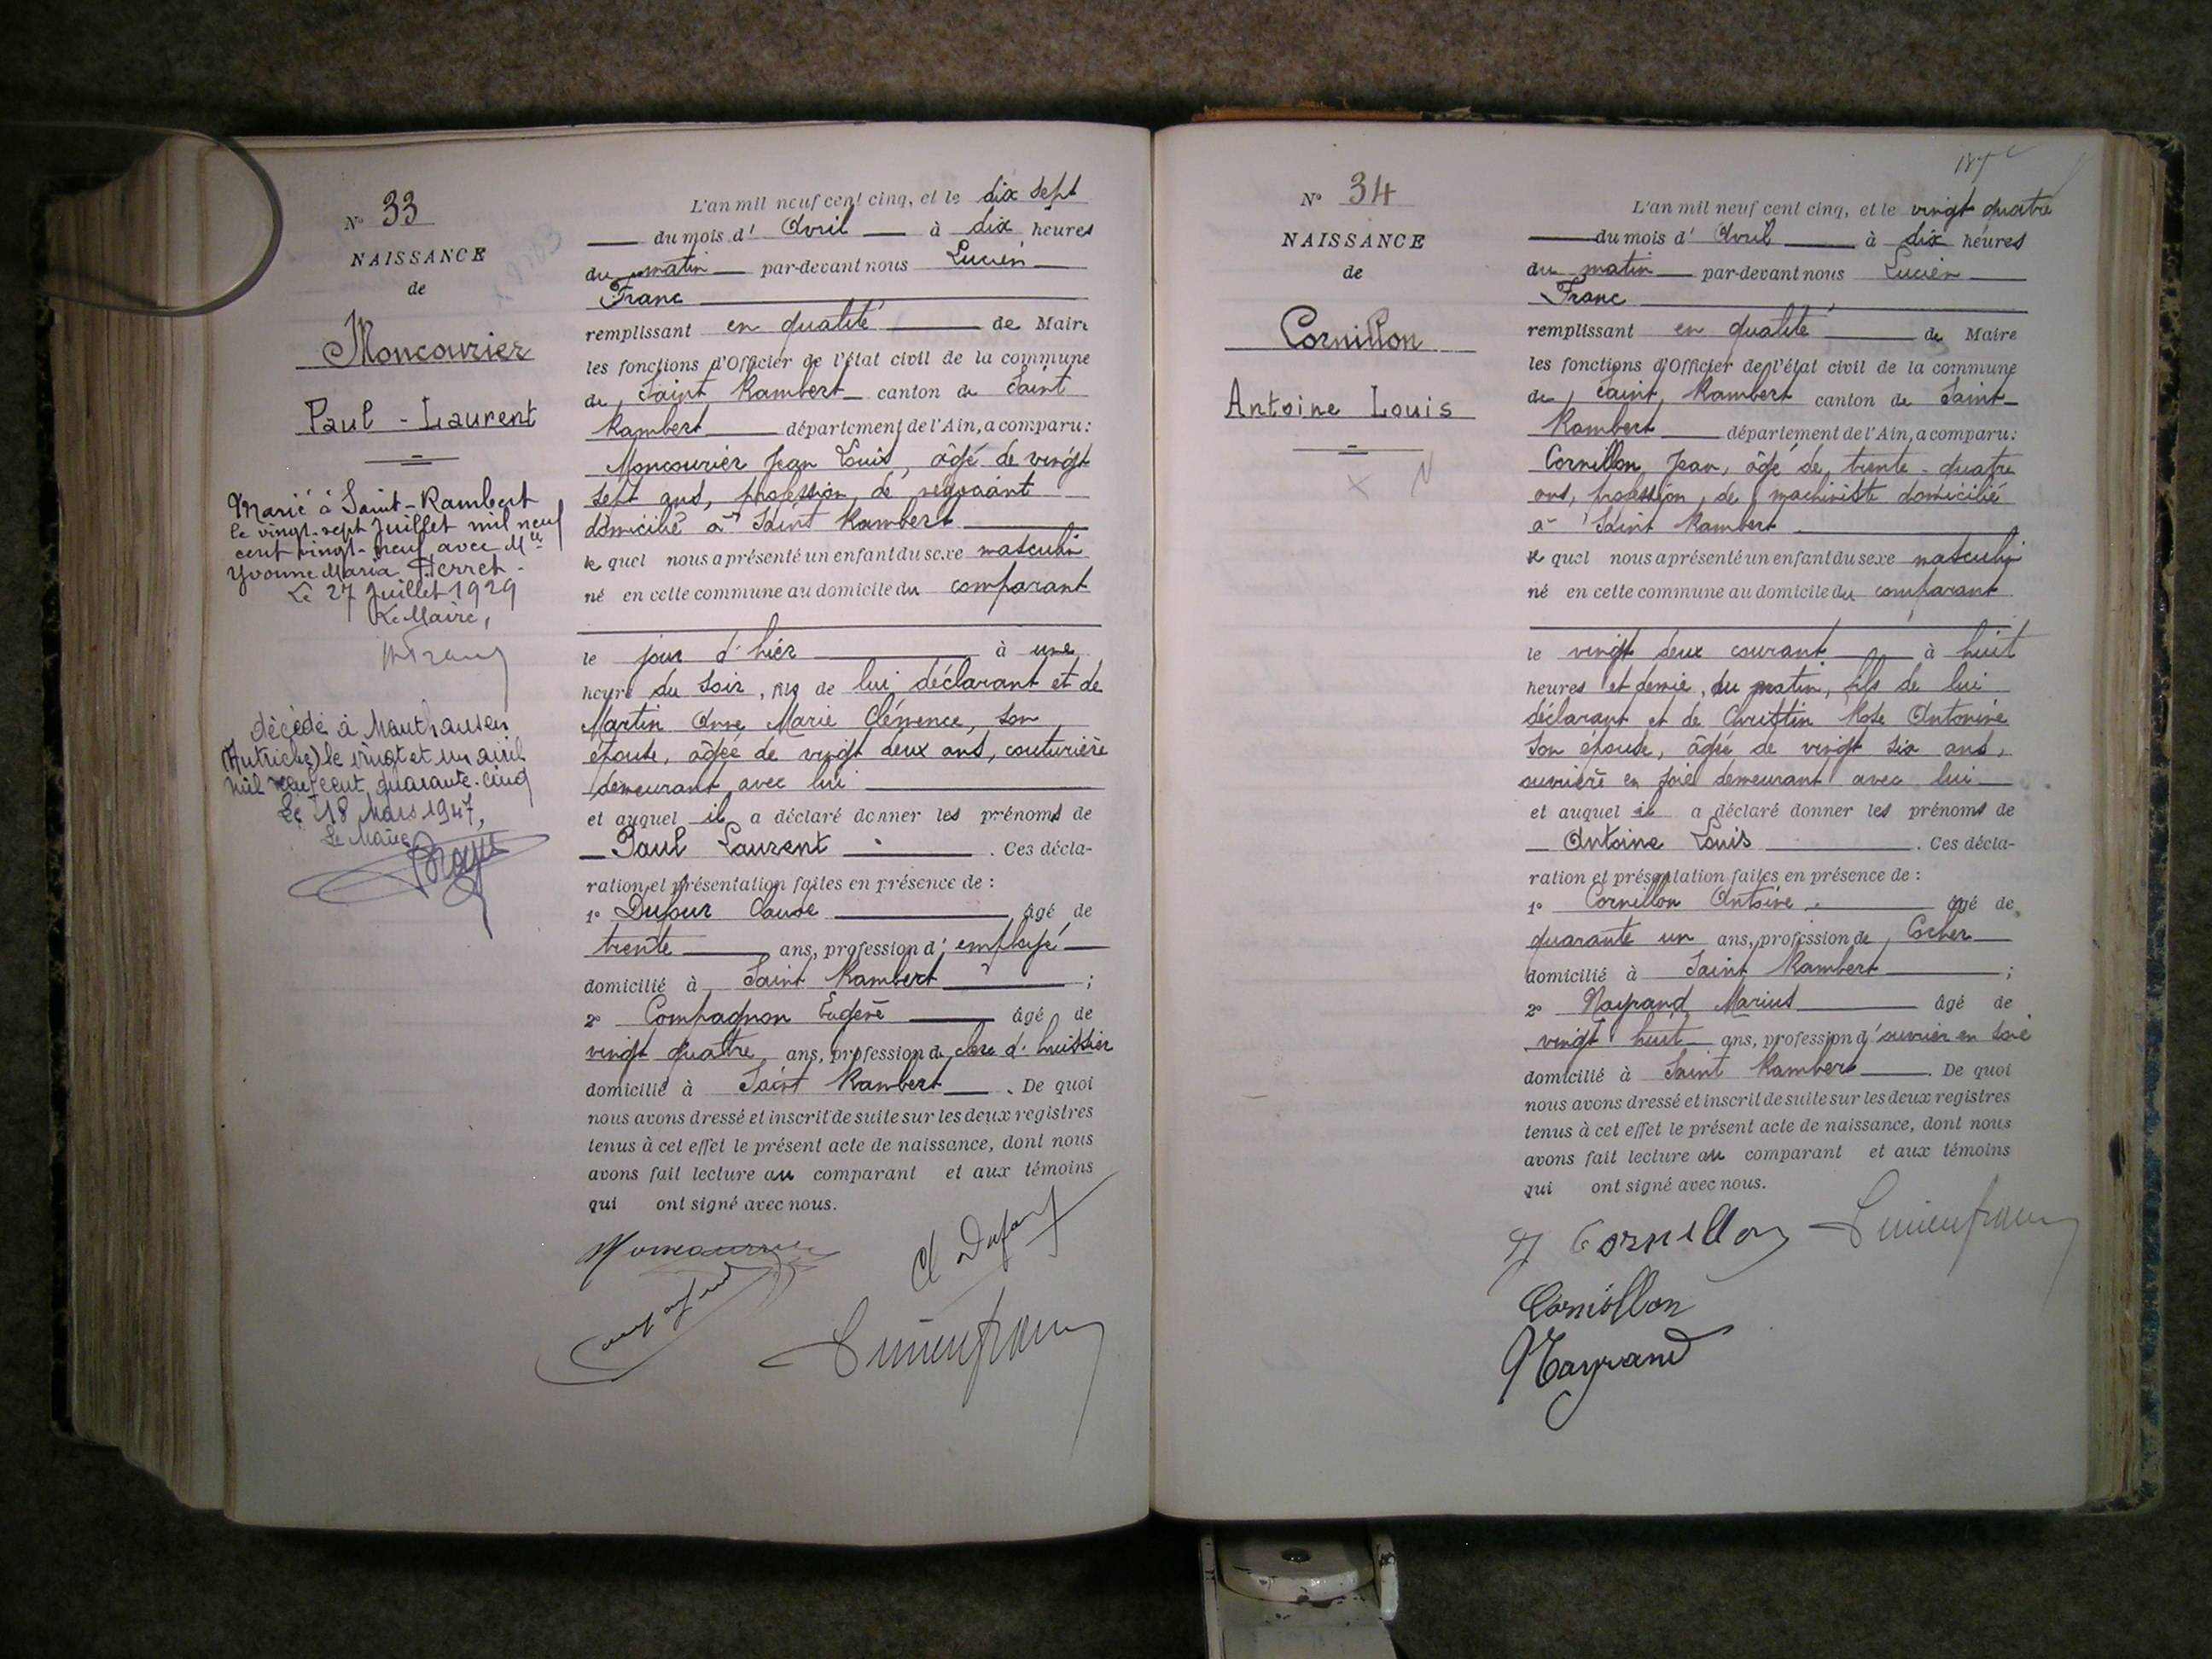 N° 33
NAISSANCE
de
Moncourier
Paul - Laurent
Marié à Saint-Rambert
le vingt-sept Juillet mil neuf
cent vingt-neuf avec Mlle
Yvonne Maria Perret.
Le 27 Juillet 1929
Le Maire,
décédé à Mauthausen
(Autriche) le vingt et un avril
mil neuf cent quarante-cinq
Le 18 Mars 1947,
Le Maire
L'an mil neuf cent cinq, et le dix sept
du mois d' Avril à dix heures
du matin par-devant nous Lucien
Franc
remplissant en qualité de Maire
les fonctions d'Officier de l'état civil de la commune
de Saint Rambert canton de Saint
Rambert département de l'Ain, a comparu:
Moncourier Jean Louis, âgé de vingt
sept ans, profession de négociant
domicilié à Saint Rambert
le quel nous a présenté un enfant du sexe masculin
né en cette commune au domicile du comparant
le jour d'hier à une
heure du soir, fils de lui déclarant et de
Martin Anne Marie Clémence, son
épouse, âgée de vingt deux ans, couturière
demeurant avec lui
et auquel il a déclaré donner les prénoms de
Paul Laurent . Ces décla-
ration et présentation faites en présence de :
1° Dufour Claude âgé de
trente ans, profession d' employé
domicilié à Saint Rambert ;
2° Compagnon Eugène âgé de
vingt quatre ans, profession de clerc d'huissier
domicilié à Saint Rambert . De quoi
nous avons dressé et inscrit de suite sur les deux registres
tenus à cet effet le présent acte de naissance, dont nous
avons fait lecture au comparant et aux témoins
qui ont signé avec nous.
Moncourrier
Cl Dufour
Compagnon
Lucien franc
N° 34
NAISSANCE
de
Cornillon
Antoine Louis
L'an mil neuf cent cinq, et le vingt quatre
du mois d' Avril à dix heures
du matin par-devant nous Lucien
Franc
remplissant en qualité de Maire
les fonctions d'Officier de l'état civil de la commune
de Saint Rambert canton de Saint
Rambert département de l'Ain, a comparu:
Cornillon Jean, âgé de trente-quatre
ans, profession de machiniste domicilié
à Saint Rambert
le quel nous a présenté un enfant du sexe masculin
né en cette commune au domicile du comparant
le vingt deux courant à huit
heures et demie, du matin, fils de lui
déclarant et de Christin Rose Antonine
son épouse, âgée de vingt six ans,
ouvrière en soie demeurant avec lui
et auquel il a déclaré donner les prénoms de
Antoine Louis . Ces décla-
ration et présentation faites en présence de :
1° Cornillon Antoine âgé de
quarante un ans, profession de Cocher
domicilié à Saint Rambert ;
2° Nayrand Marius âgé de
vingt huit ans, profession d'ouvrier en soie
domicilié à Saint Rambert . De quoi
nous avons dressé et inscrit de suite sur les deux registres
tenus à cet effet le présent acte de naissance, dont nous
avons fait lecture au comparant et aux témoins
qui ont signé avec nous.
J Cornillon Lucien franc
Cornillon
Nayrand